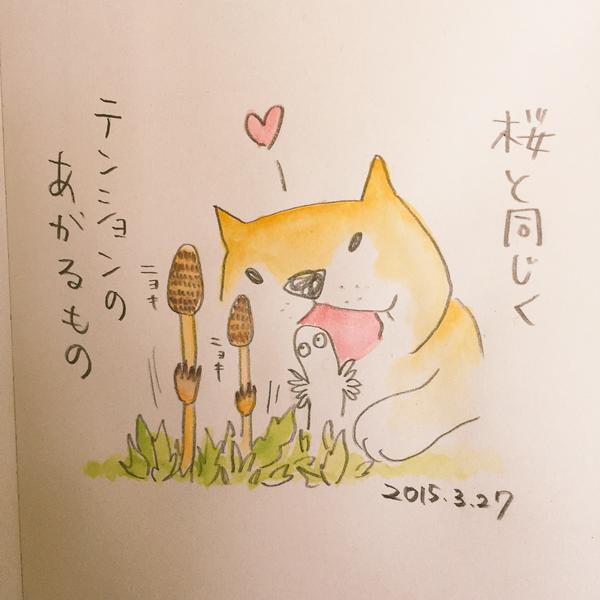 桜と同じく
テンションの
あがるもの
ニョキ
ニョキ
2015.3.27